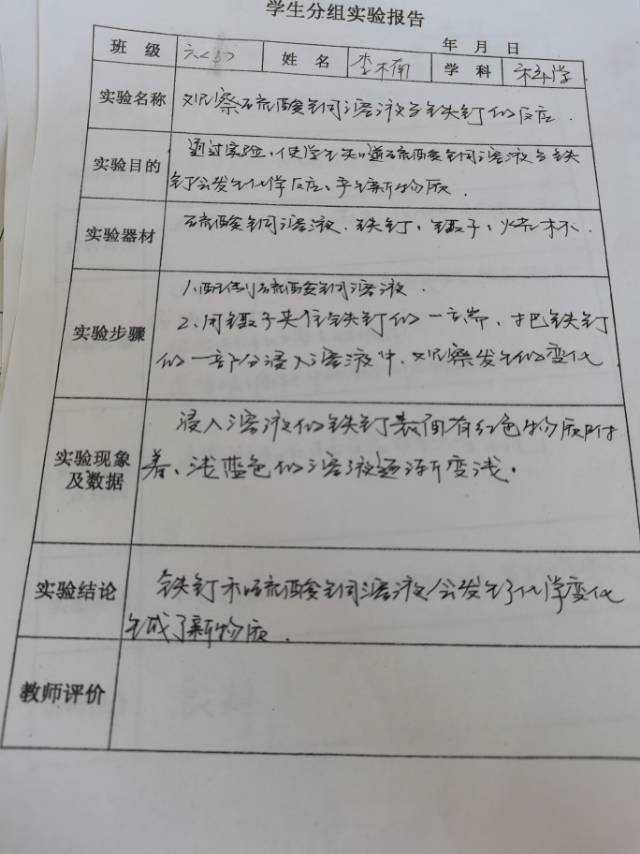 学生分组实验报告
年 月 日
班 级 六(5) 姓 名 李木南 学 科 科学
实验名称 观察硫酸铜溶液与铁钉的反应.
实验目的 通过实验,使学生知道硫酸铜溶液与铁
钉会发生化学反应、产生新物质.
实验器材 硫酸铜溶液、铁钉、镊子、烧杯.
实验步骤 1.配制硫酸铜溶液.
2.用镊子夹住铁钉的一端,把铁钉
的一部分浸入溶液中.观察发生的变化
实验现象及数据 浸入溶液的铁钉表面有红色物质附
着、浅蓝色的溶液逐渐变浅.
实验结论 铁钉和硫酸铜溶液会发生了化学变化
生成了新物质.
教师评价